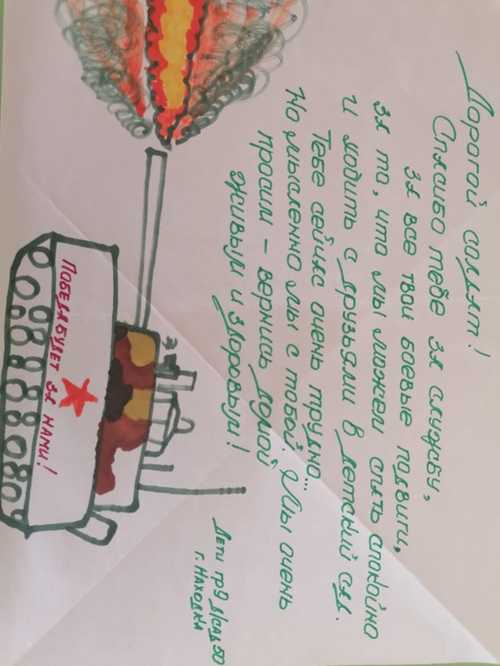 Дорогой солдат!
Спасибо тебе за службу,
за все твои боевые подвиги,
за то, что мы можем спать спокойно
и ходить с друзьями в детский сад.
Тебе сейчас очень трудно...
Но мысленно мы с тобой! Мы очень
просим - вернись домой
живым и здоровым!
Дети гр 9 д/сад 50
г. Находка
Победа будет за нами!